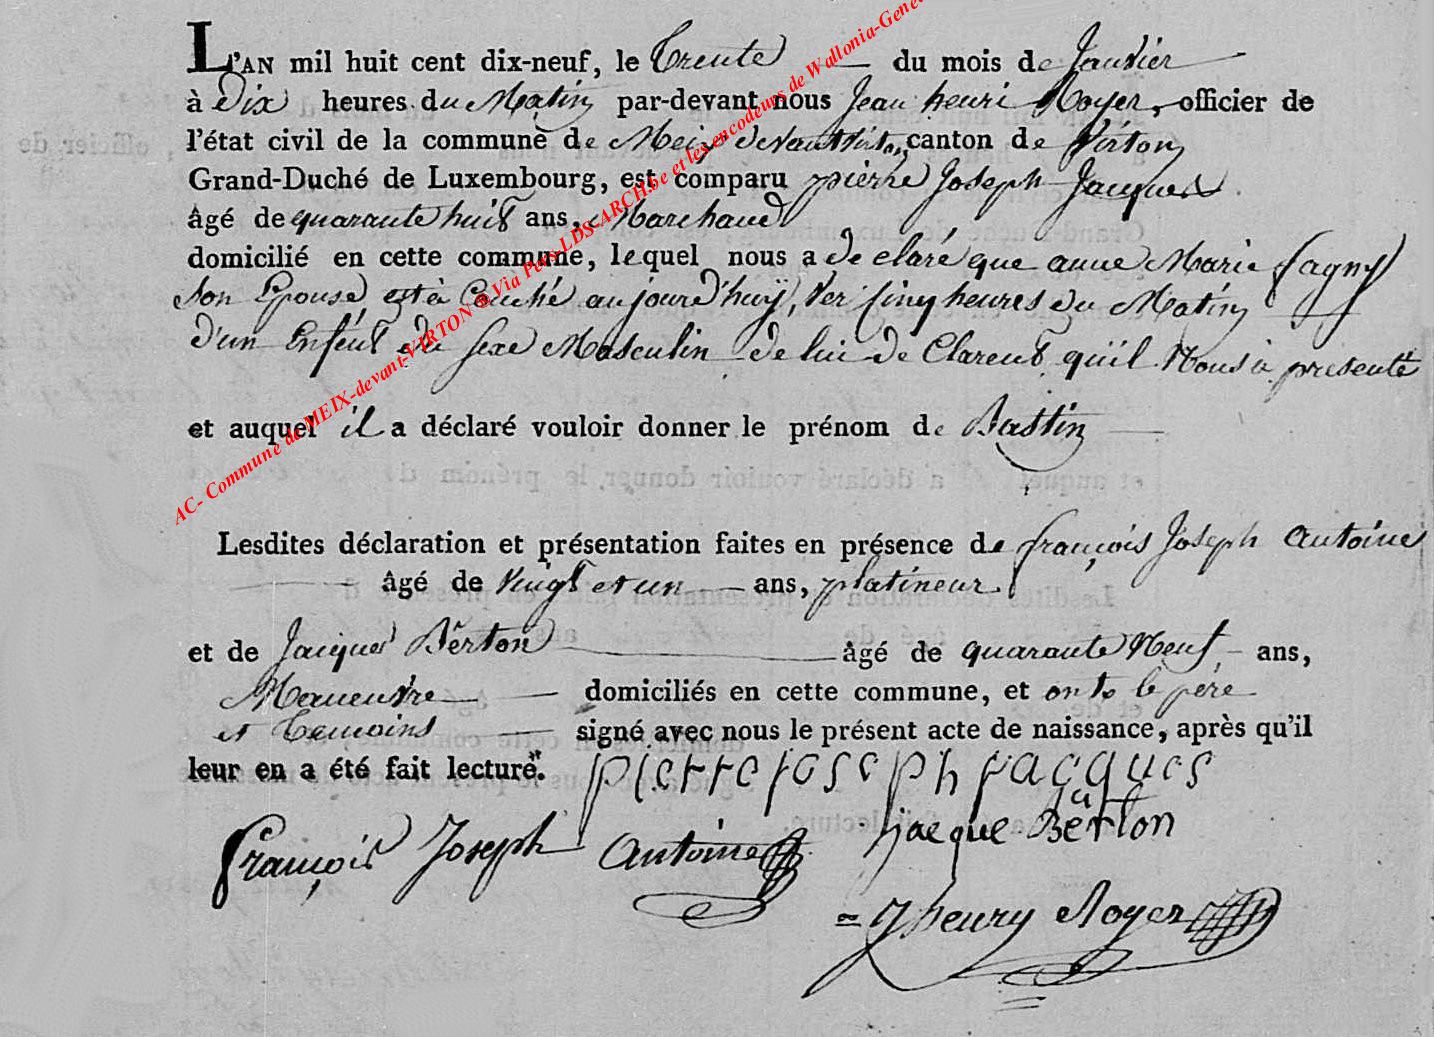 L'AN mil huit cent dix-neuf, le Trente du mois de Janvier
à Dix heures du Matin par-devant nous Jean henri Royer, officier de
l'état civil de la commune de Meix devant Virton, canton de Virton
Grand-Duché de Luxembourg, est comparu pierre Joseph Jacques
âgé de quarante huit ans, Marchand
domicilié en cette commune, lequel nous a de claré que anne Marie fagny
Son Epouse est à Couché au jourd'huÿ, Ver Cinq heures du Matin
d'un Enfent du Sexe Masculin de lui de Clarent, qu'il Nous à présenté
et auquel il a déclaré vouloir donner le prénom de Bastin
Lesdites déclaration et présentation faites en présence de françois Joseph Antoine
âgé de Vingt et un ans, platineur
et de Jacques Berton âgé de quarante Neuf ans,
Maneuvre domiciliés en cette commune, et onts le père
et Temoins signé avec nous le présent acte de naissance, après qu'il
leur en a été fait lecture.
pierre joseph jacques
françois Joseph Antoine
jacque Bërton
Jhenry Royer
AC- Commune de MEIX-devant-VIRTON @ Via Pers-LDS-ARCH.be et les encodeurs de Wallonia-Gene